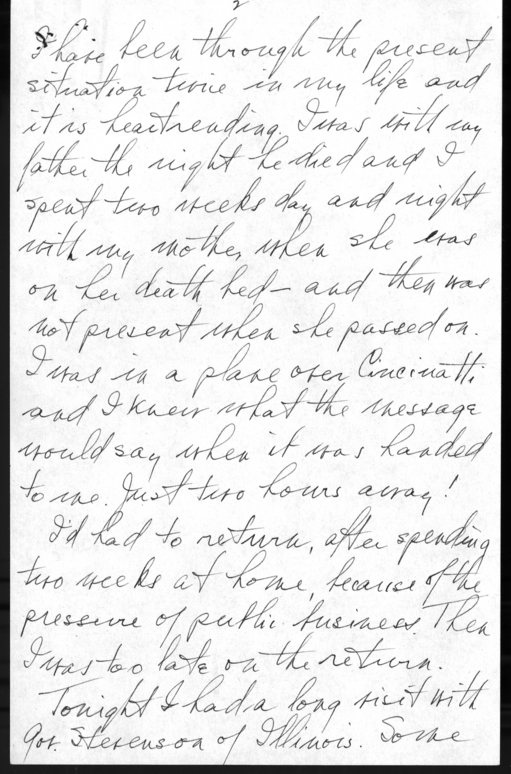 2
I have been through the present
situation twice in my life and
it is heartrending. I was with my
father the night he died and I
spent two weeks day and night
with my mother when she was
on her death bed - and then was
not present when she passed on.
I was in a plane over Cincinatti
and I knew what the message
would say when it was handed
to me. Just two hours away!
I'd had to return, after spending
two weeks at home, because of the
pressure of public business. Then
I was too late on the return.
Tonight I had a long visit with
Gov. Stevenson of Illinois. Some